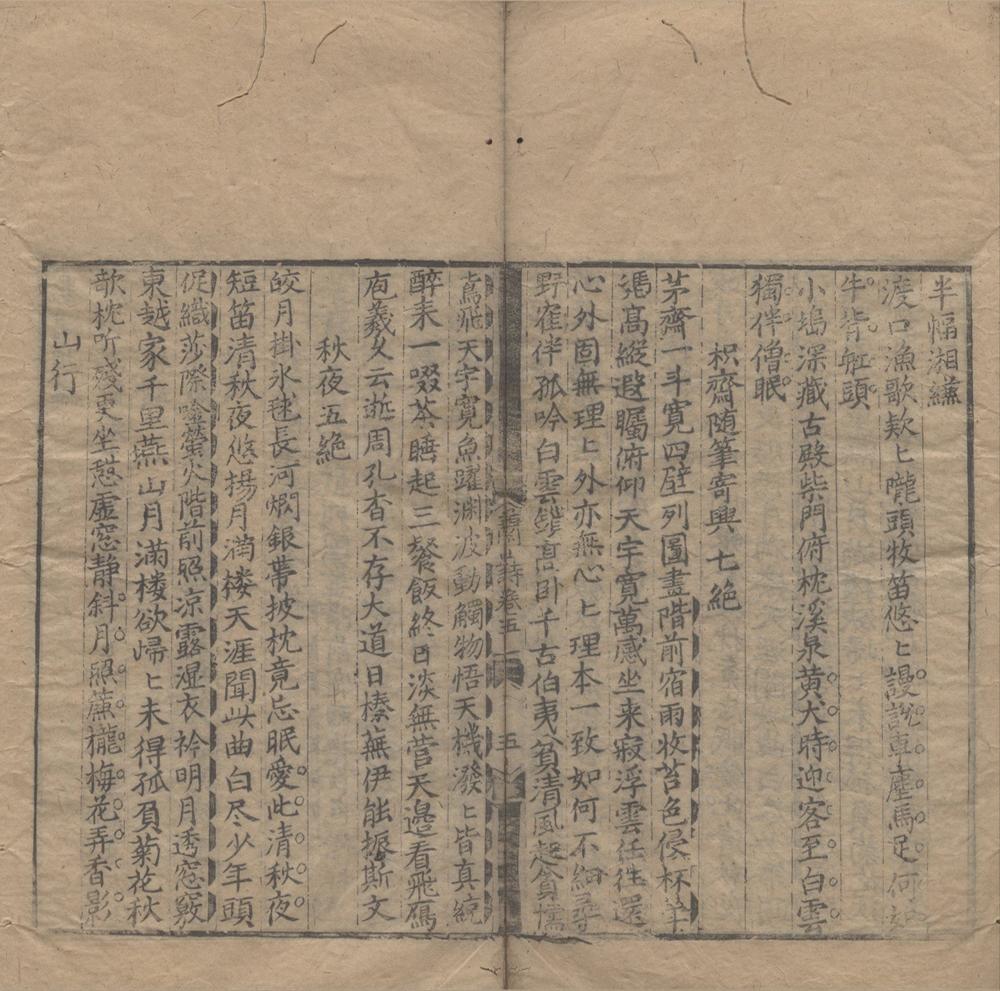 半幅湘縑
渡口漁歌欵〻隴頭牧笛悠〻謾說車塵馬足何如
牛背舡頭
小塢深藏古殿柴門俯枕溪泉黃犬時迎客至白雲
獨伴僧眠
枳齋随筆寄興七絶
茅齋一斗寬四壁列圖畫階前宿雨收苔色侵杯斝
憑高縱遐矚俯仰天宇寬萬感坐来寂浮雲任往還
心外固無理〻外亦無心〻理本一致如何不細尋
野寉伴孤吟白雲
高卧千古伯夷貧清風起貪懦
鳶飛天宇寬魚躍淵波動觸物悟天機潑〻皆真統
醉来一啜茶睡起三飡飯終日淡無营天邉看飛鴈
庖羲久云逝周孔杳不存大道日榛蕪伊能振斯文
秋夜五絶
皎月掛氷毬長河爛銀帶披枕竟忘眠愛此清秋夜
短笛清秋夜悠揚月滿楼天涯聞此曲白尽少年頭
促織莎際吟螢火階前照凉露湿衣衿明月透窓竅
東越家千里燕山月滿楼欲歸〻未得孤負菊花秋
欹枕听殘更坐憇虚窓静斜月照簾櫳梅花弄香影
山行
詩卷五
五